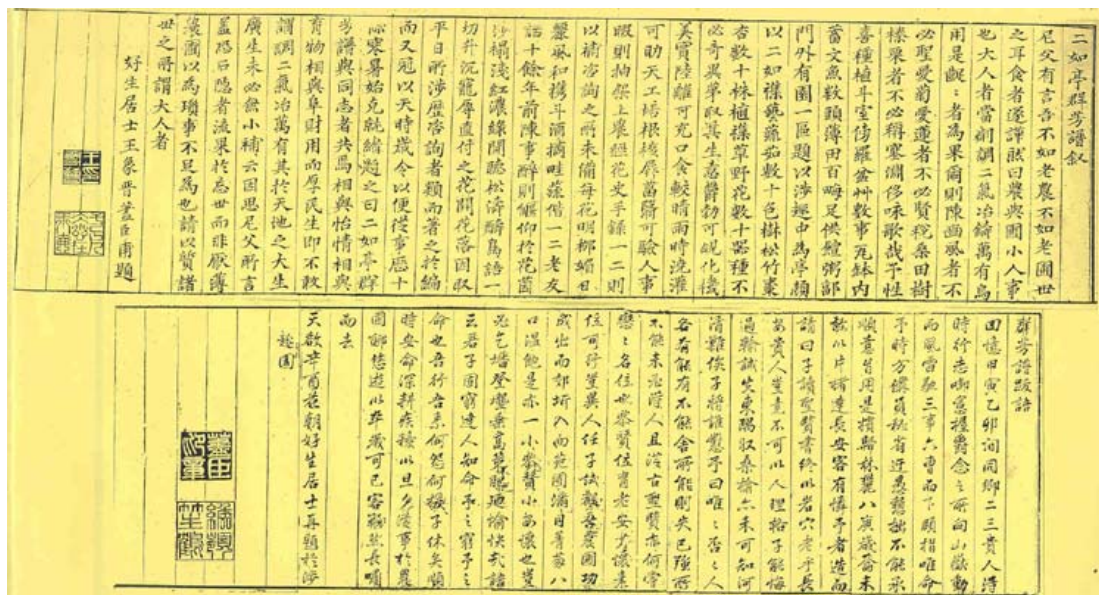 二如亭群芳譜叙
尼父有言吾不如老農不如老圃世
之耳食者遂謂然曰農與圃小人事
也大人者當爕調二氣冶鑄萬有烏
用是齪齪者為果爾則陳豳風者不
必聖愛菊愛蓮者不必賢稅桑田樹
榛栗者不必稱塞淵侈咏歌哉予性
喜種植斗室傍羅盆草數事瓦缽內
蓄文魚數頭薄田百畮足供饘粥郭
門外有園一區題以涉趣中為亭顏
以二如雜藝蔬茹數十色樹松竹棗
杏數十株植雜草野花數十器種不
必奇異第取其生意欝勃可覘化機
美實陸離可充口食較晴雨時澆灌
可助天工培根核屏菑翳可驗人事
暇則抽架上農經花史手錄一二則
以補咨詢之所未備每花明柳媚日
麗風和攜斗酒摘畦蔬偕一二老友
話十餘年前陳事醉則偃仰於花茵
莎榻淺紅濃綠間聽松濤酬鳥語一
切升沉寵辱直付之花開花落因取
平日所涉歷咨詢者類而著之於編
而又冠以天時歲令以便從事歷十
餘寒暑始克就緒題之曰二如亭群
芳譜與同志者共焉相與怡情相與
育物相與阜財用而厚民生即不敢
謂調二氣冶萬有其於天地之大生
廣生未必無小補云因思尼父所言
蓋恐石隱者流果於忘世而非厭薄
農圃以為瑣事不足為也請以質諸
世之所謂大人者
好生居士王象晉藎臣甫題
群芳譜跋語
回憶甲寅乙卯間同鄉二三貴人得
時行志嘯窓握爵念之所向山嶽動
而風雷馳三事六曹而下頤指唯命
予時方儤員秘省迂愚戇拙不能承
順意旨用是擯歸林麓八歲歲
歉以片楮達長安客有憐予者造而
請曰子讀聖賢書終以岩穴老乎長
安貴人豈盡不可以人理格子能悔
過輸誠失東隅收桑榆亦未可知河
清難俟子將誰懟予曰唯唯否否人
各有能有不能舍所能則失已強所
不能未必得人且從古聖賢亦何常
戀戀名位也
位可行豈異人任子試觀吾農圃功
成出而郊圻入而苑囿滿目菁葱八
口溫飽是亦一小小安懷也豈
必乞墦登壟垂髙
云君子固窮達人知命予之窮予之
命也吾行吾素何怨何尤子休矣順
時安命深耕疾穮以旦夕從事於農
圃聊悠遊以卒歲可已客輾然長嘯
而去
天啟辛酉花朝好生居士再題於涉
趣園